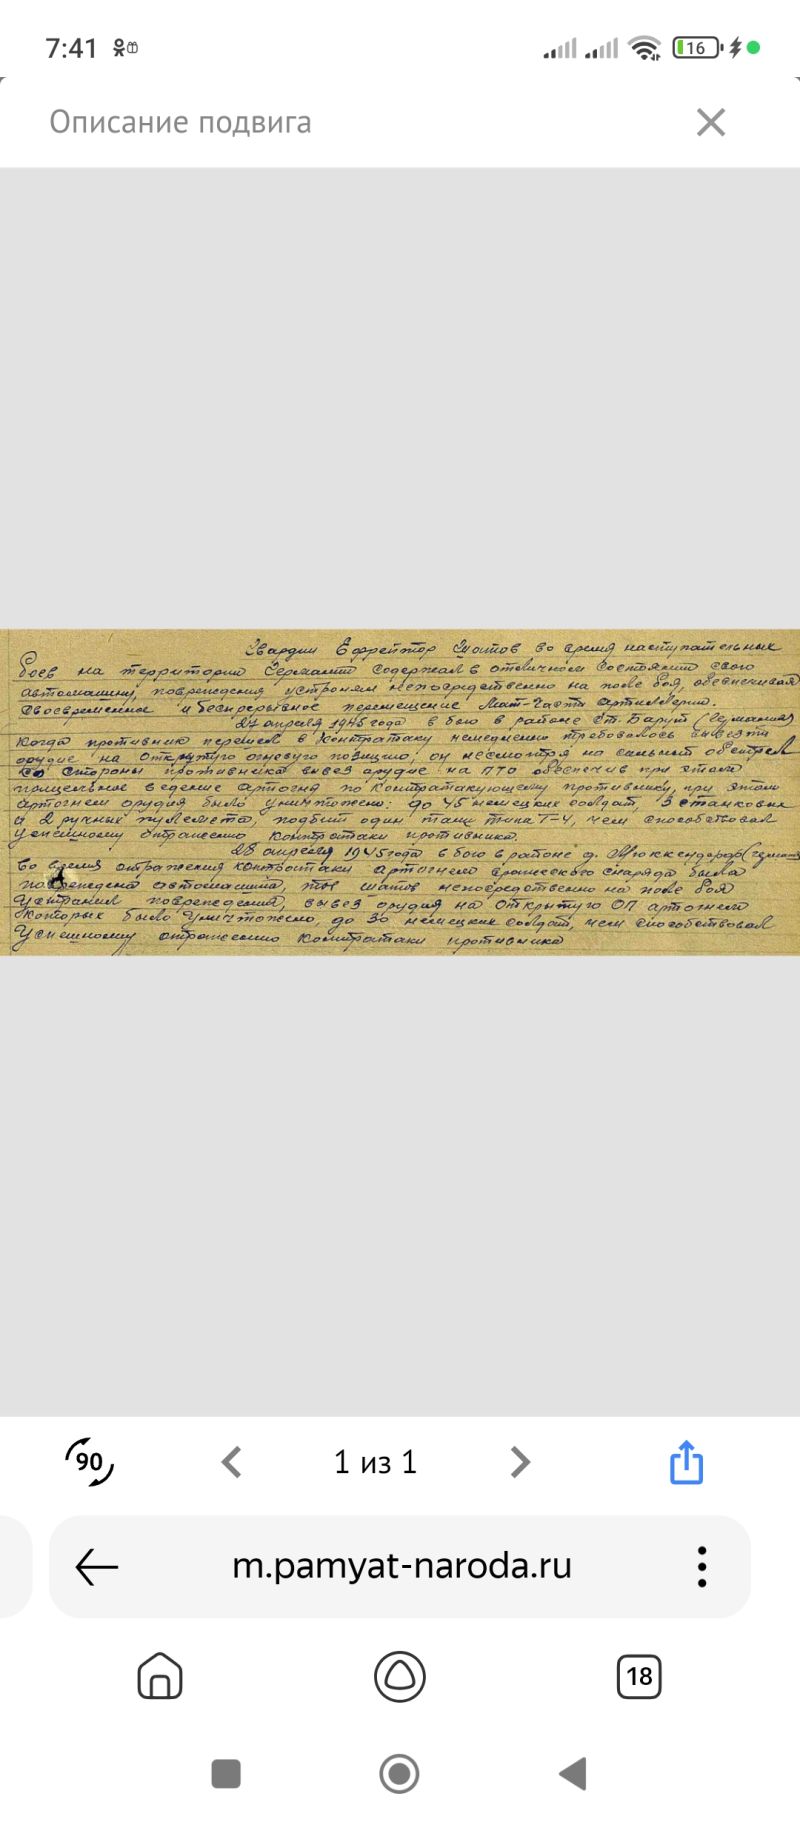 7:41
16
Описание подвига
Гвардии Ефрейтор Шатов во время наступательных
боев на территории Германии содержал в отличном состоянии свою
автомашину, повреждения устранял непосредственно на поле боя, обеспечивая
своевременное и беспрерывное перемещение Мат-Части артиллерии.
27 апреля 1945 года в бою в районе ст. Барут (Германия)
когда противник перешел в контратаку немедленно требовалось вывезти
орудие на открытую огневую позицию, он несмотря на сильный обстрел
со стороны противника вывез орудие на ПТО обеспечив при этом
прицельное ведение артогня по контратакующему противнику, при этом
артогнем орудия было уничтожено: до 45 немецких солдат, 3 станковых
и 2 ручных пулемета, подбит один танк типа Т-4, чем способствовал
успешному отражению контратаки противника.
28 апреля 1945 года в бою в районе д. Мюккендорф (Германия
во время отражения контратаки артогнем вражеского снаряда была
повреждена автомашина, тов Шатов непосредственно на поле боя
устранил повреждения, вывез орудия на открытую ОП артогнем
которых было уничтожено, до 30 немецких солдат, чем способствовал
успешному отражению контратаки противника
90
1 из 1
m.pamyat-naroda.ru
18